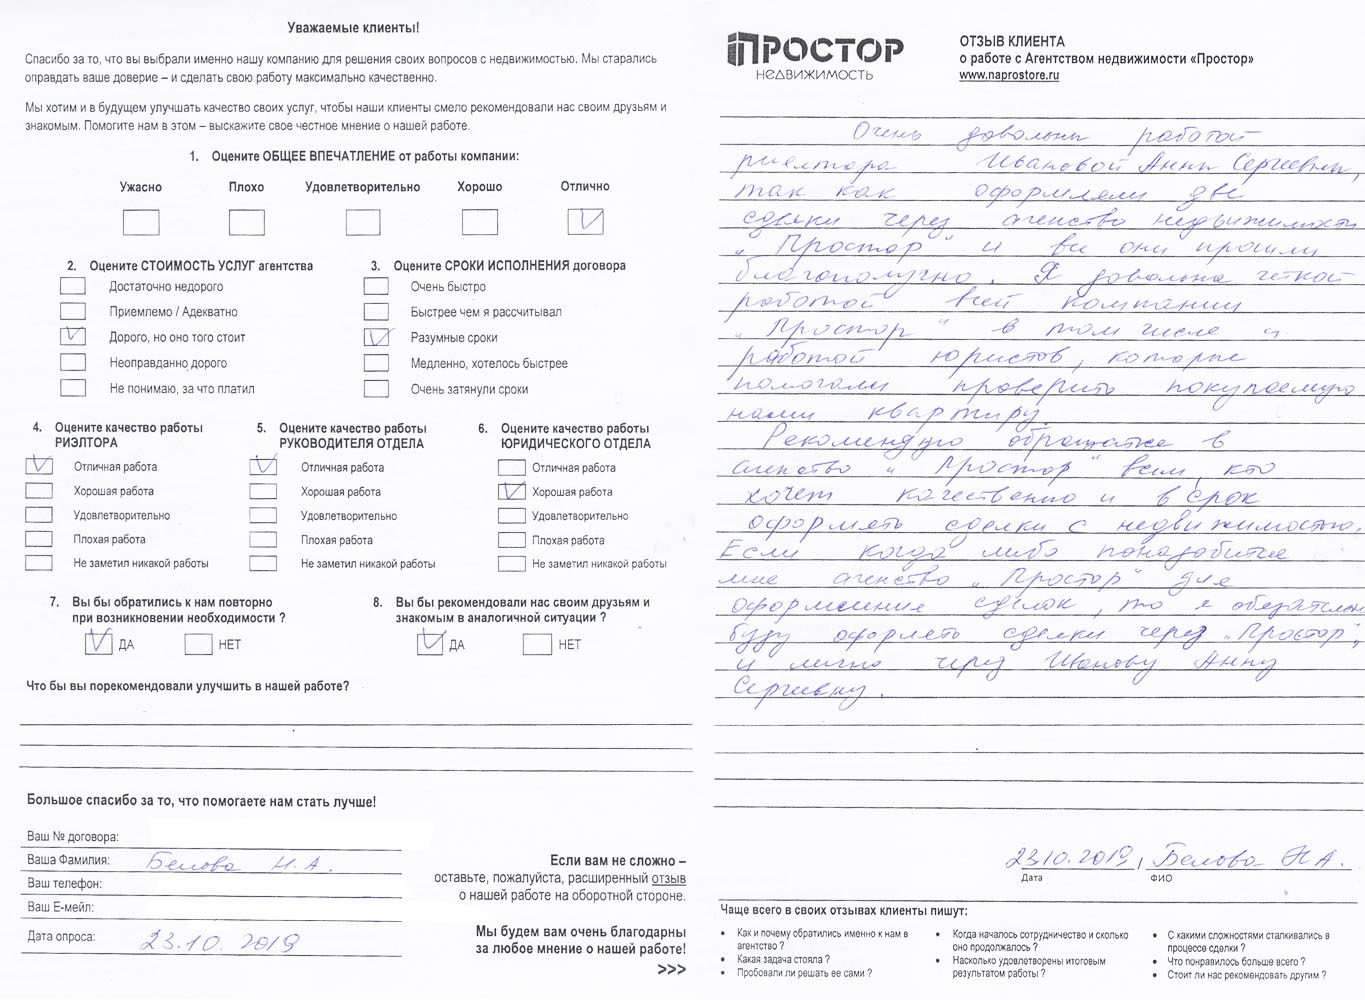 Уважаемые клиенты!
Спасибо за то, что вы выбрали именно нашу компанию для решения своих вопросов с недвижимостью. Мы старались
оправдать ваше доверие – и сделать свою работу максимально качественно.
Мы хотим и в будущем улучшать качество своих услуг, чтобы наши клиенты смело рекомендовали нас своим друзьям и
знакомым. Помогите нам в этом – выскажите свое честное мнение о нашей работе.
1. Оцените ОБЩЕЕ ВПЕЧАТЛЕНИЕ от работы компании:
Ужасно Плохо Удовлетворительно Хорошо Отлично
2. Оцените СТОИМОСТЬ УСЛУГ агентства
Достаточно недорого
Приемлемо / Адекватно
Дорого, но оно того стоит
Неоправданно дорого
Не понимаю, за что платил
3. Оцените СРОКИ ИСПОЛНЕНИЯ договора
Очень быстро
Быстрее чем я рассчитывал
Разумные сроки
Медленно, хотелось быстрее
Очень затянули сроки
4. Оцените качество работы
РИЭЛТОРА
Отличная работа
Хорошая работа
Удовлетворительно
Плохая работа
Не заметил никакой работы
5. Оцените качество работы
РУКОВОДИТЕЛЯ ОТДЕЛА
Отличная работа
Хорошая работа
Удовлетворительно
Плохая работа
Не заметил никакой работы
6. Оцените качество работы
ЮРИДИЧЕСКОГО ОТДЕЛА
Отличная работа
Хорошая работа
Удовлетворительно
Плохая работа
Не заметил никакой работы
7. Вы бы обратились к нам повторно
при возникновении необходимости ?
ДА НЕТ
8. Вы бы рекомендовали нас своим друзьям и
знакомым в аналогичной ситуации ?
ДА НЕТ
Что бы вы порекомендовали улучшить в нашей работе?
Большое спасибо за то, что помогаете нам стать лучше!
Ваш № договора:
Ваша Фамилия: Белова Н.А.
Ваш телефон:
Ваш Е-мейл:
Дата опроса: 23.10.2019
Если вам не сложно –
оставьте, пожалуйста, расширенный отзыв
о нашей работе на оборотной стороне.
Мы будем вам очень благодарны
за любое мнение о нашей работе!
>>>
ПРОСТОР
НЕДВИЖИМОСТЬ
ОТЗЫВ КЛИЕНТА
о работе с Агентством недвижимости «Простор»
www.naprostore.ru
Очень довольны работой
риелтора Ивановой Анны Сергеевны,
так как оформляли две
сделки через агенство недвижимости
„Простор“ и все они прошли
благополучно. Я довольна четкой
работой всей компании
„Простор“ в том числе и
работой юристов, которые
помогали проверить покупаемую
нами квартиру.
Рекомендую обращатся в
агенство „Простор“ всем, кто
хочет качественно и в срок
оформлять сделки с недвижимостью.
Если когда либо понадобится
мне агенство „Простор“ для
оформления сделок, то я обязательно
буду оформлять сделки через „Простор“,
и лично через Иванову Анну
Сергеевну.
23.10.2019, Белова Н А.
Дата ФИО
Чаще всего в своих отзывах клиенты пишут:
• Как и почему обратились именно к нам в
агентство ?
• Какая задача стояла ?
• Пробовали ли решать ее сами ?
• Когда началось сотрудничество и сколько
оно продолжалось ?
• Насколько удовлетворены итоговым
результатом работы ?
• С какими сложностями сталкивались в
процессе сделки ?
• Что понравилось больше всего ?
• Стоит ли нас рекомендовать другим ?